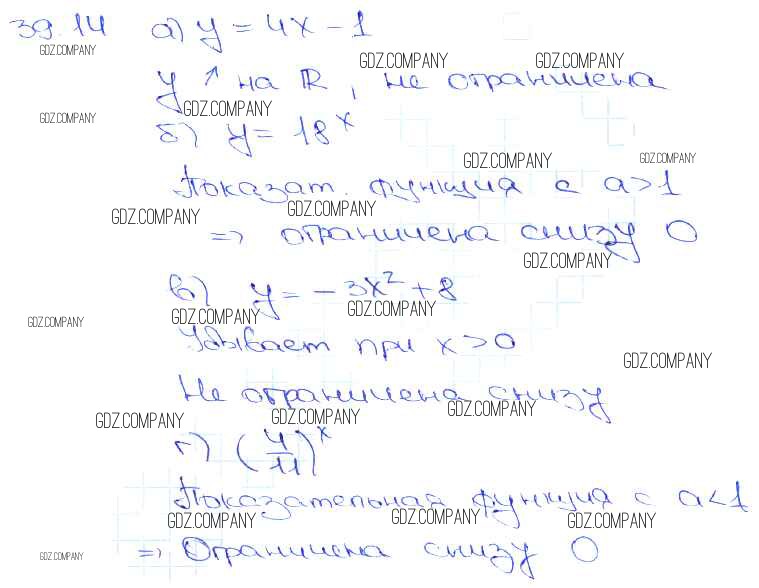 39.14 а) y = 4x - 1
GDZ.COMPANY
GDZ.COMPANY GDZ.COMPANY
y ↑ на ℝ, не ограничена
GDZ.COMPANY
GDZ.COMPANY
б) y = 18^x
GDZ.COMPANY GDZ.COMPANY
Показат. функция с a > 1
GDZ.COMPANY GDZ.COMPANY
=> ограничена снизу 0
GDZ.COMPANY
в) y = -3x² + 8
GDZ.COMPANY GDZ.COMPANY GDZ.COMPANY
Убывает при x > 0
GDZ.COMPANY
Не ограничена снизу
GDZ.COMPANY GDZ.COMPANY GDZ.COMPANY
г) (4/11)^x
Показательная функция с a < 1
GDZ.COMPANY GDZ.COMPANY GDZ.COMPANY
=> Ограничена снизу 0
GDZ.COMPANY